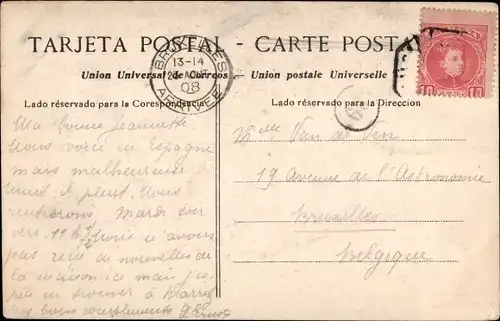 TARJETA POSTAL - CARTE POSTALE
Union Universal de Correos - Union postale Universelle
Lado réservado para la Corespondencia
Lado réservado para la Direccion
BRUXELLES
13-14
08
ARRIVÉE
10 10
6
Ma bonne Jeannette
Nous voici en Espagne
mais malheureusement
il pleut. Nous
rentrerons Mardi soir
vers 11 h 1/2
pas reçu de nouvelles de
la maison ici mais j'espère
en trouver à Biarritz
bons compliments
Melle Van de Ven
19 avenue de l'Astronomie
Bruxelles
Belgique